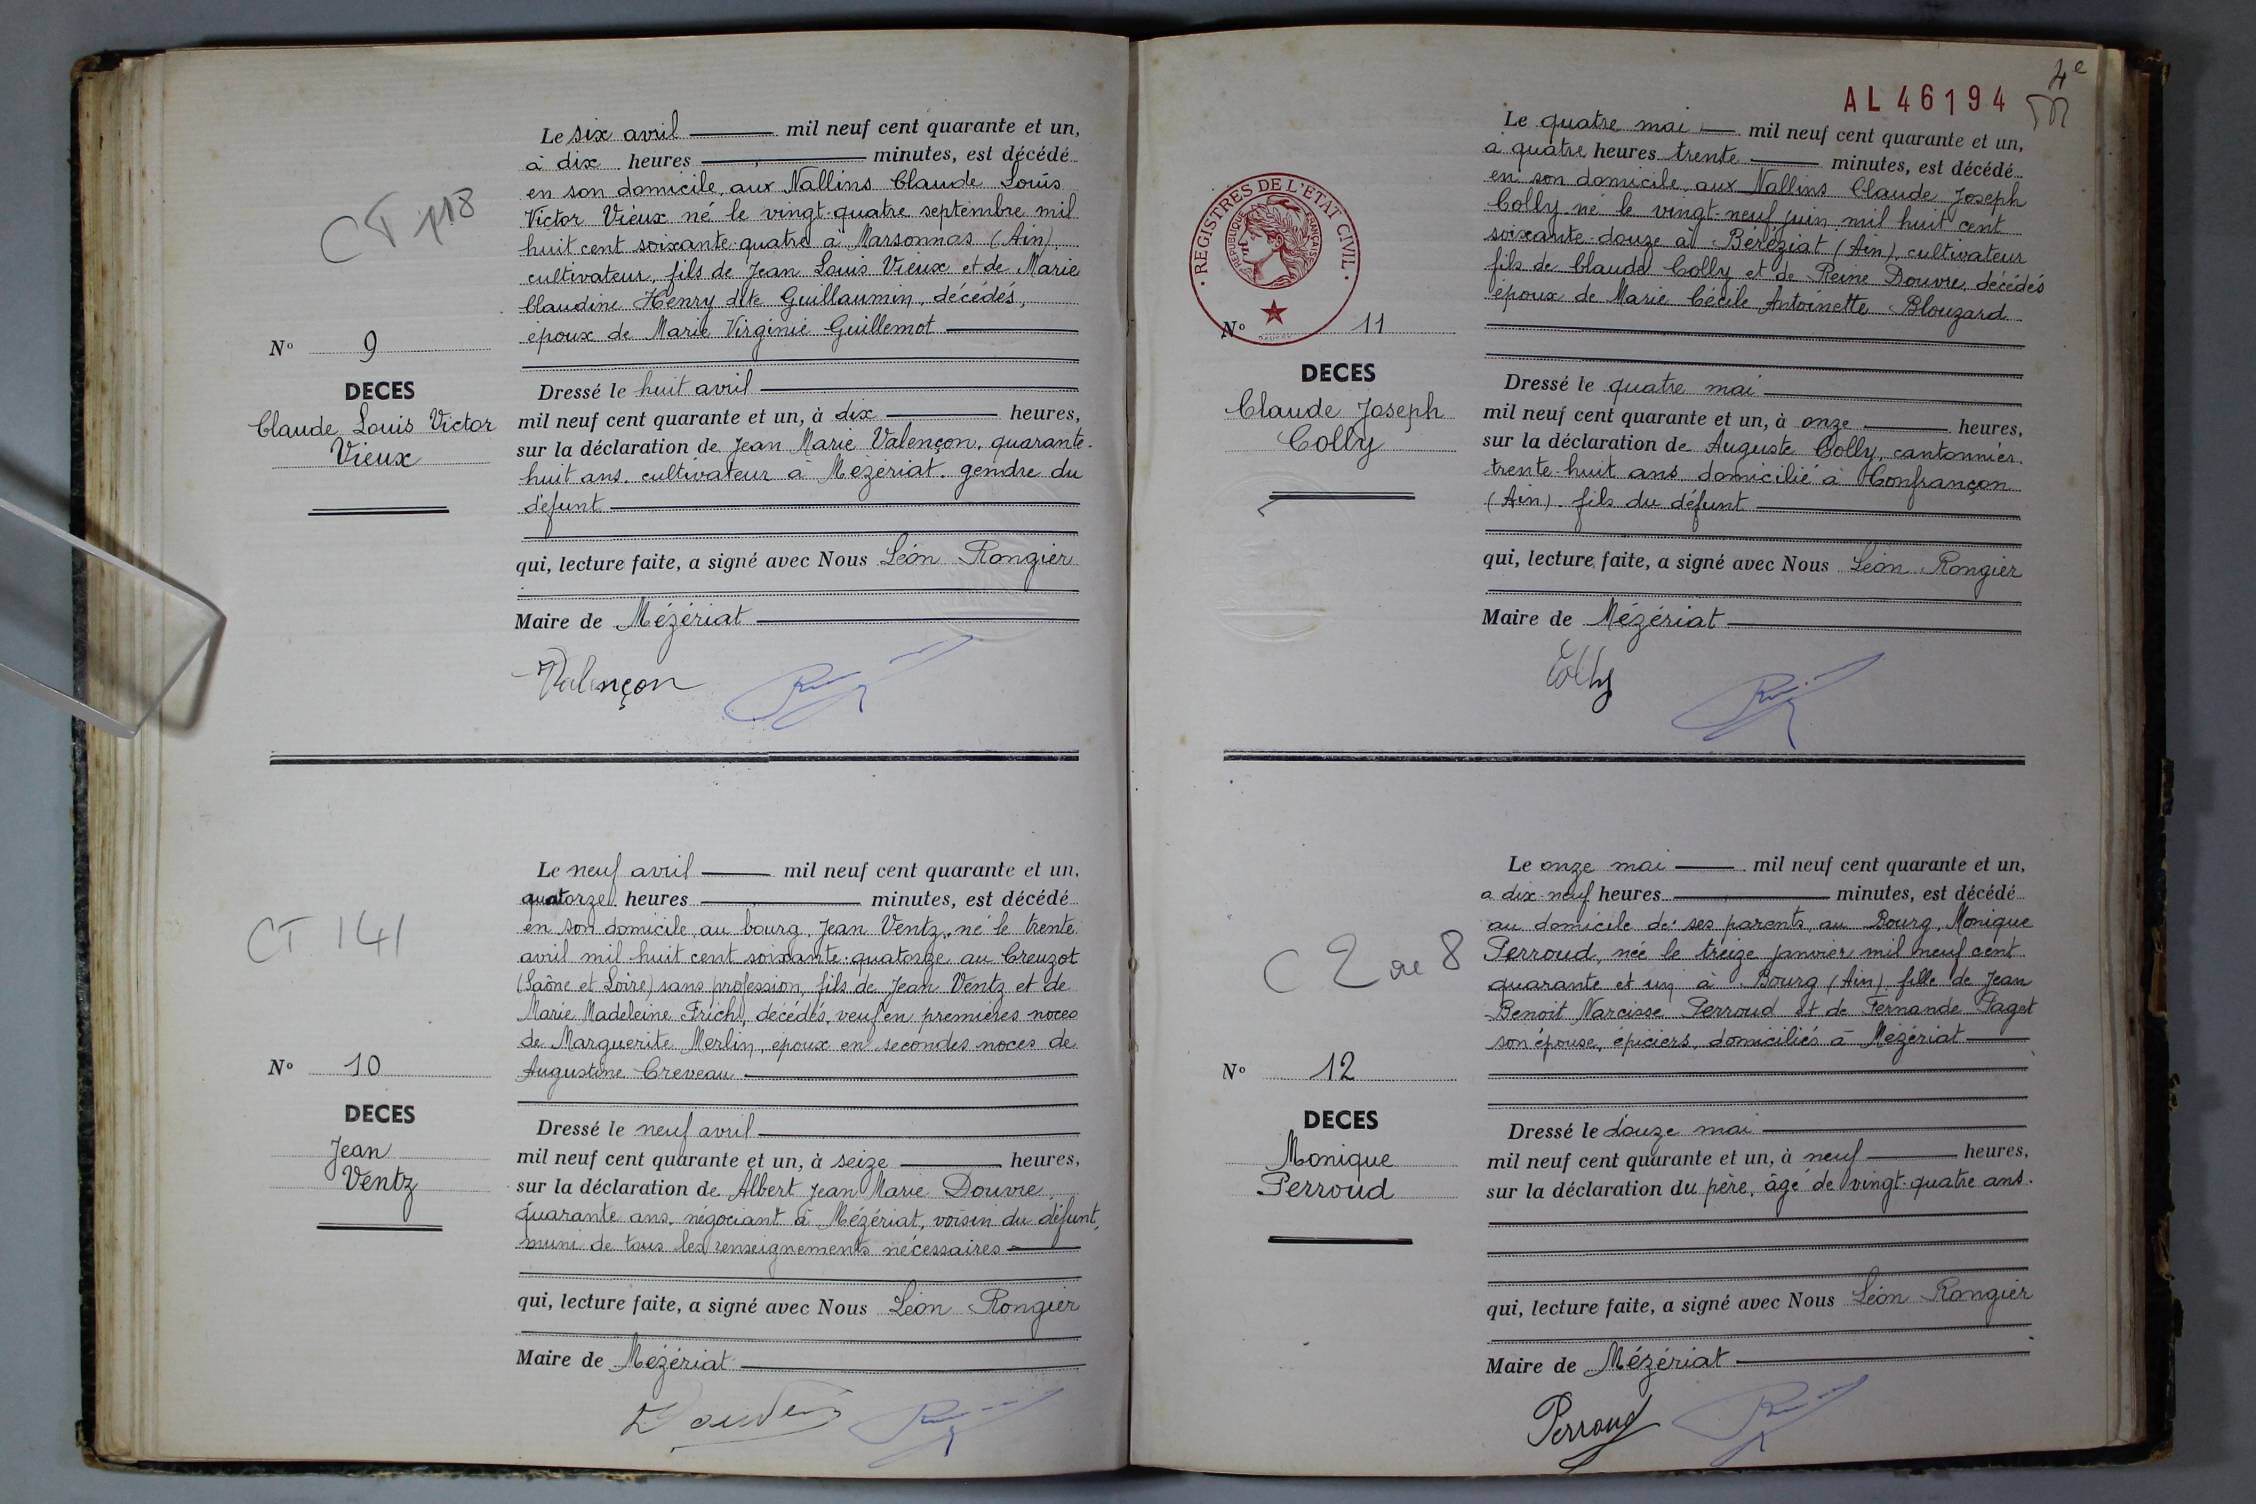 Le six avril mil neuf cent quarante et un,
à dix heures minutes, est décédé
en son domicile, aux Nallins Claude Louis
Victor Vieux né le vingt-quatre septembre mil
huit cent soixante-quatre à Marsonnas (Ain),
cultivateur, fils de Jean Louis Vieux et de Marie
Claudine Henry dite Guillaumin, décédés,
époux de Marie Virginie Guillemot
CT 118
N° 9
DECES
Claude Louis Victor
Vieux
Dressé le huit avril
mil neuf cent quarante et un, à dix heures,
sur la déclaration de Jean Marie Valençon, quarante-
huit ans, cultivateur à Mézériat, gendre du
défunt
qui, lecture faite, a signé avec Nous Léon Rongier
Maire de Mézériat
Valençon
Le neuf avril mil neuf cent quarante et un,
quatorze heures minutes, est décédé
en son domicile, au bourg, Jean Ventz, né le trente
avril mil huit cent soixante-quatorze au Creuzot
(Saône et Loire) sans profession, fils de Jean Ventz et de
Marie Madeleine Frichl, décédés, veuf en premières noces
de Marguerite Merlin, époux en secondes noces de
Augustine Creveau
CT 141
N° 10
DECES
Jean
Ventz
Dressé le neuf avril
mil neuf cent quarante et un, à seize heures,
sur la déclaration de Albert Jean Marie Douvre
quarante ans, négociant à Mézériat, voisin du défunt,
muni de tous les renseignements nécessaires
qui, lecture faite, a signé avec Nous Léon Rongier
Maire de Mézériat
4e
AL 46194
Le quatre mai mil neuf cent quarante et un,
à quatre heures trente minutes, est décédé
en son domicile, aux Nallins Claude Joseph
Colly né le vingt-neuf juin mil huit cent
soixante-douze à Béréziat (Ain), cultivateur
fils de Claude Colly et de Reine Douvre, décédés
époux de Marie Cécile Antoinette Blouzard
REGISTRES DE L'ÉTAT CIVIL
RÉPUBLIQUE FRANÇAISE
N° 11
DECES
Claude Joseph
Colly
Dressé le quatre mai
mil neuf cent quarante et un, à onze heures,
sur la déclaration de Auguste Colly, cantonnier,
trente-huit ans domicilié à Confrançon
(Ain), fils du défunt
qui, lecture faite, a signé avec Nous Léon Rongier
Maire de Mézériat
Colly
Le onze mai mil neuf cent quarante et un,
à dix-neuf heures minutes, est décédé
au domicile de ses parents, au Bourg, Monique
Perroud, née le treize janvier mil neuf cent
quarante et un à Bourg (Ain), fille de Jean
Benoit Narcisse Perroud et de Fernande Paget
son épouse, épiciers, domiciliés à Mézériat
N° 12
DECES
Monique
Perroud
Dressé le douze mai
mil neuf cent quarante et un, à neuf heures,
sur la déclaration du père, âgé de vingt-quatre ans.
qui, lecture faite, a signé avec Nous Léon Rongier
Maire de Mézériat
Perroud